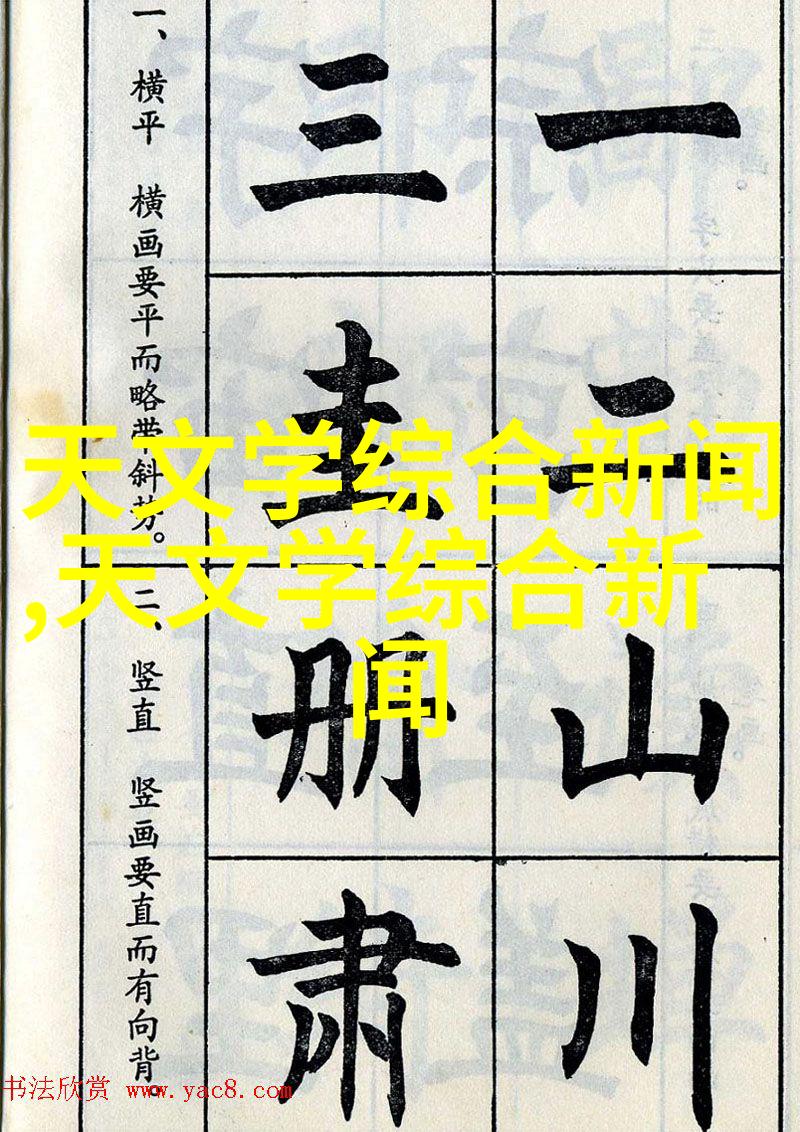 一
二
山
川
三
圭
册
肃
一、横平　横画要平而略带斜势。
二、竖直　竖画要直而有向背。
天文学综合新闻
,天文学综合新
闻
书法欣赏 www.yac8.com